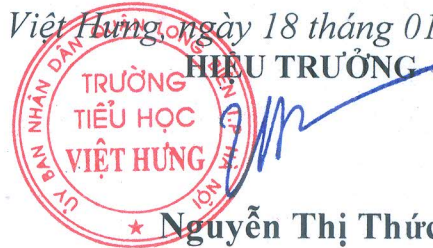 Việt Hưng, ngày 18 tháng 01
HIỆU TRƯỞNG
ỦY BAN NHÂN DÂN QUẬN LONG BIÊN T.P HÀ NỘI
TRƯỜNG
TIỂU HỌC
VIỆT HƯNG
Nguyễn Thị Thức